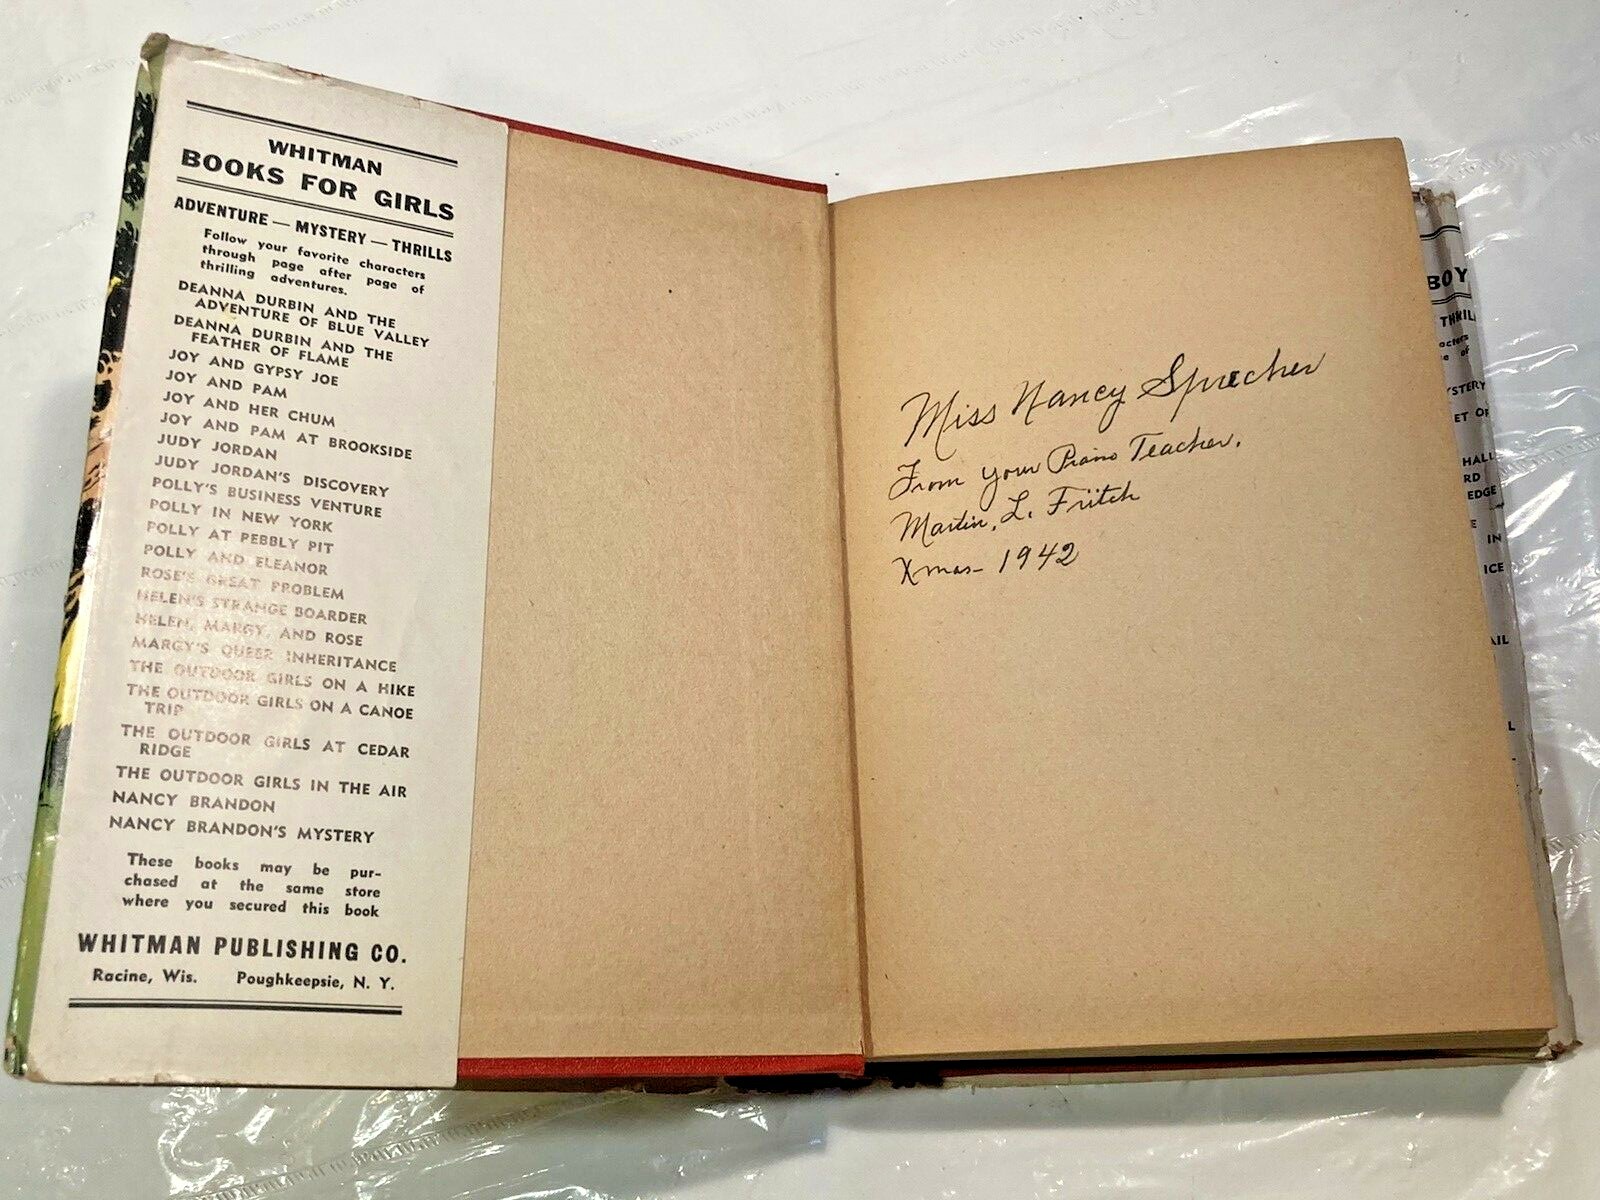 WHITMAN
BOOKS FOR GIRLS
ADVENTURE — MYSTERY — THRILLS
Follow your favorite characters
through page after page of
thrilling adventures.
DEANNA DURBIN AND THE
ADVENTURE OF BLUE VALLEY
DEANNA DURBIN AND THE
FEATHER OF FLAME
JOY AND GYPSY JOE
JOY AND PAM
JOY AND HER CHUM
JOY AND PAM AT BROOKSIDE
JUDY JORDAN
JUDY JORDAN'S DISCOVERY
POLLY'S BUSINESS VENTURE
POLLY IN NEW YORK
POLLY AT PEBBLY PIT
POLLY AND ELEANOR
ROSE'S GREAT PROBLEM
HELEN'S STRANGE BOARDER
HELEN, MARGY, AND ROSE
MARGY'S QUEER INHERITANCE
THE OUTDOOR GIRLS ON A HIKE
THE OUTDOOR GIRLS ON A CANOE
TRIP
THE OUTDOOR GIRLS AT CEDAR
RIDGE
THE OUTDOOR GIRLS IN THE AIR
NANCY BRANDON
NANCY BRANDON'S MYSTERY
These books may be pur-
chased at the same store
where you secured this book
WHITMAN PUBLISHING CO.
Racine, Wis. Poughkeepsie, N. Y.
Miss Nancy Sprecher
From your Piano Teacher.
Martin, L. Fritch
Xmas- 1942
BOY
THRILL
acters
e of
YSTERY
ET OF
HALL
RD
EDGE
E
IN
ICE
AIL
L